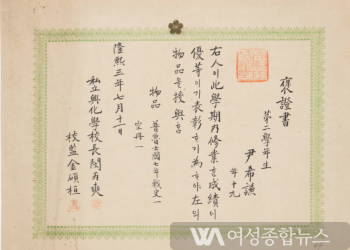 褒證書
第二學年生
尹希謙
年十九
右人이此學期內修業き成績이
優等이기表彰하기為하야左의
物品을授與홈
物品 普魯士國七年戰史一
空冊一
隆熙三年七月十一日
私立興化學校長閔丙奭
校監金碩桓
여성종합뉴스